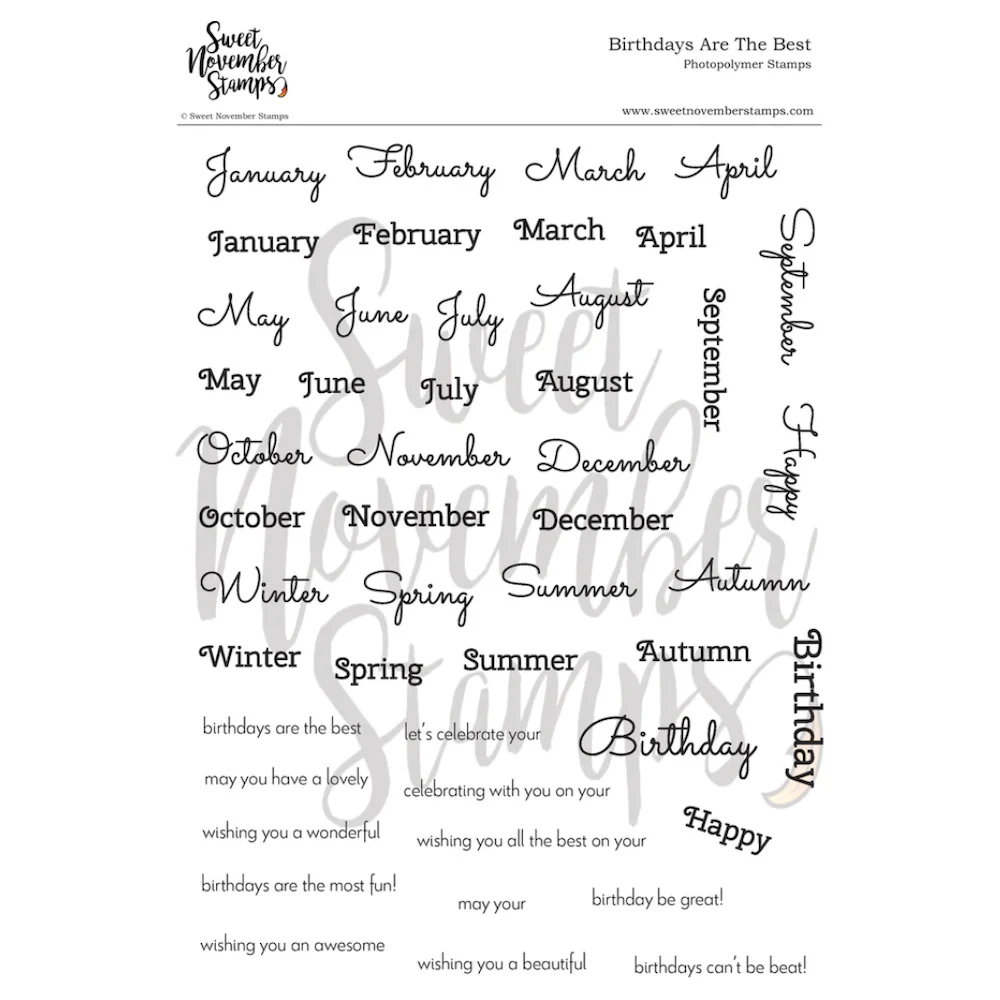 Sweet
November
Stamps
© Sweet November Stamps
Birthdays Are The Best
Photopolymer Stamps
www.sweetnovemberstamps.com
January February March April
January February March April
September
September
May June July August
May June July August
October November December
Happy
October November December
Winter Spring Summer Autumn
Winter Spring Summer Autumn
Birthday
Birthday
birthdays are the best let's celebrate your
may you have a lovely celebrating with you on your
Happy
wishing you a wonderful wishing you all the best on your
birthdays are the most fun! may your birthday be great!
wishing you an awesome wishing you a beautiful birthdays can't be beat!
Sweet
November
Stamps